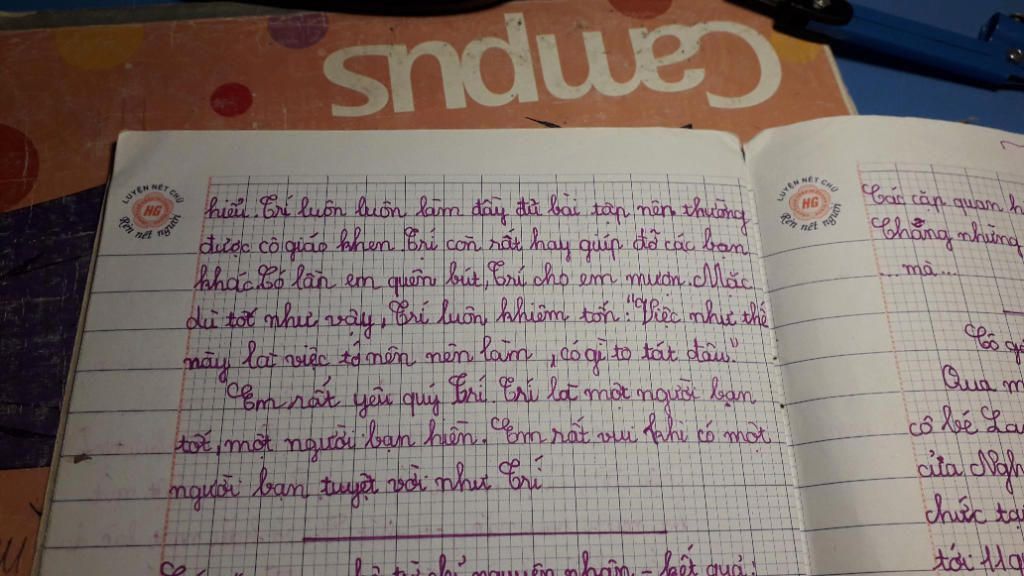 Campus
LUYỆN NÉT CHỮ
HG
Rèn nết người
hiểu. Trí luôn luôn làm đầy đủ bài tập nên thường
được cô giáo khen. Trí còn rất hay giúp đỡ các bạn
khác. Có lần em quên bút, Trí cho em mượn. Mặc
dù tốt như vậy, Trí luôn khiêm tốn: "Việc như thế
này là việc tớ nên nên làm, có gì to tát đâu."
Em rất yêu quý Trí. Trí là một người bạn
tốt, một người bạn hiền. Em rất vui khi có một
người bạn tuyệt vời như Trí.
nguyên nhân - kết quả:
LUYỆN NÉT CHỮ
HG
Rèn nết người
Các cặp quan h
Chẳng những
... mà ...
Cô g
Qua m
cô bé La
của Ngh
chức tạ
tới 11g